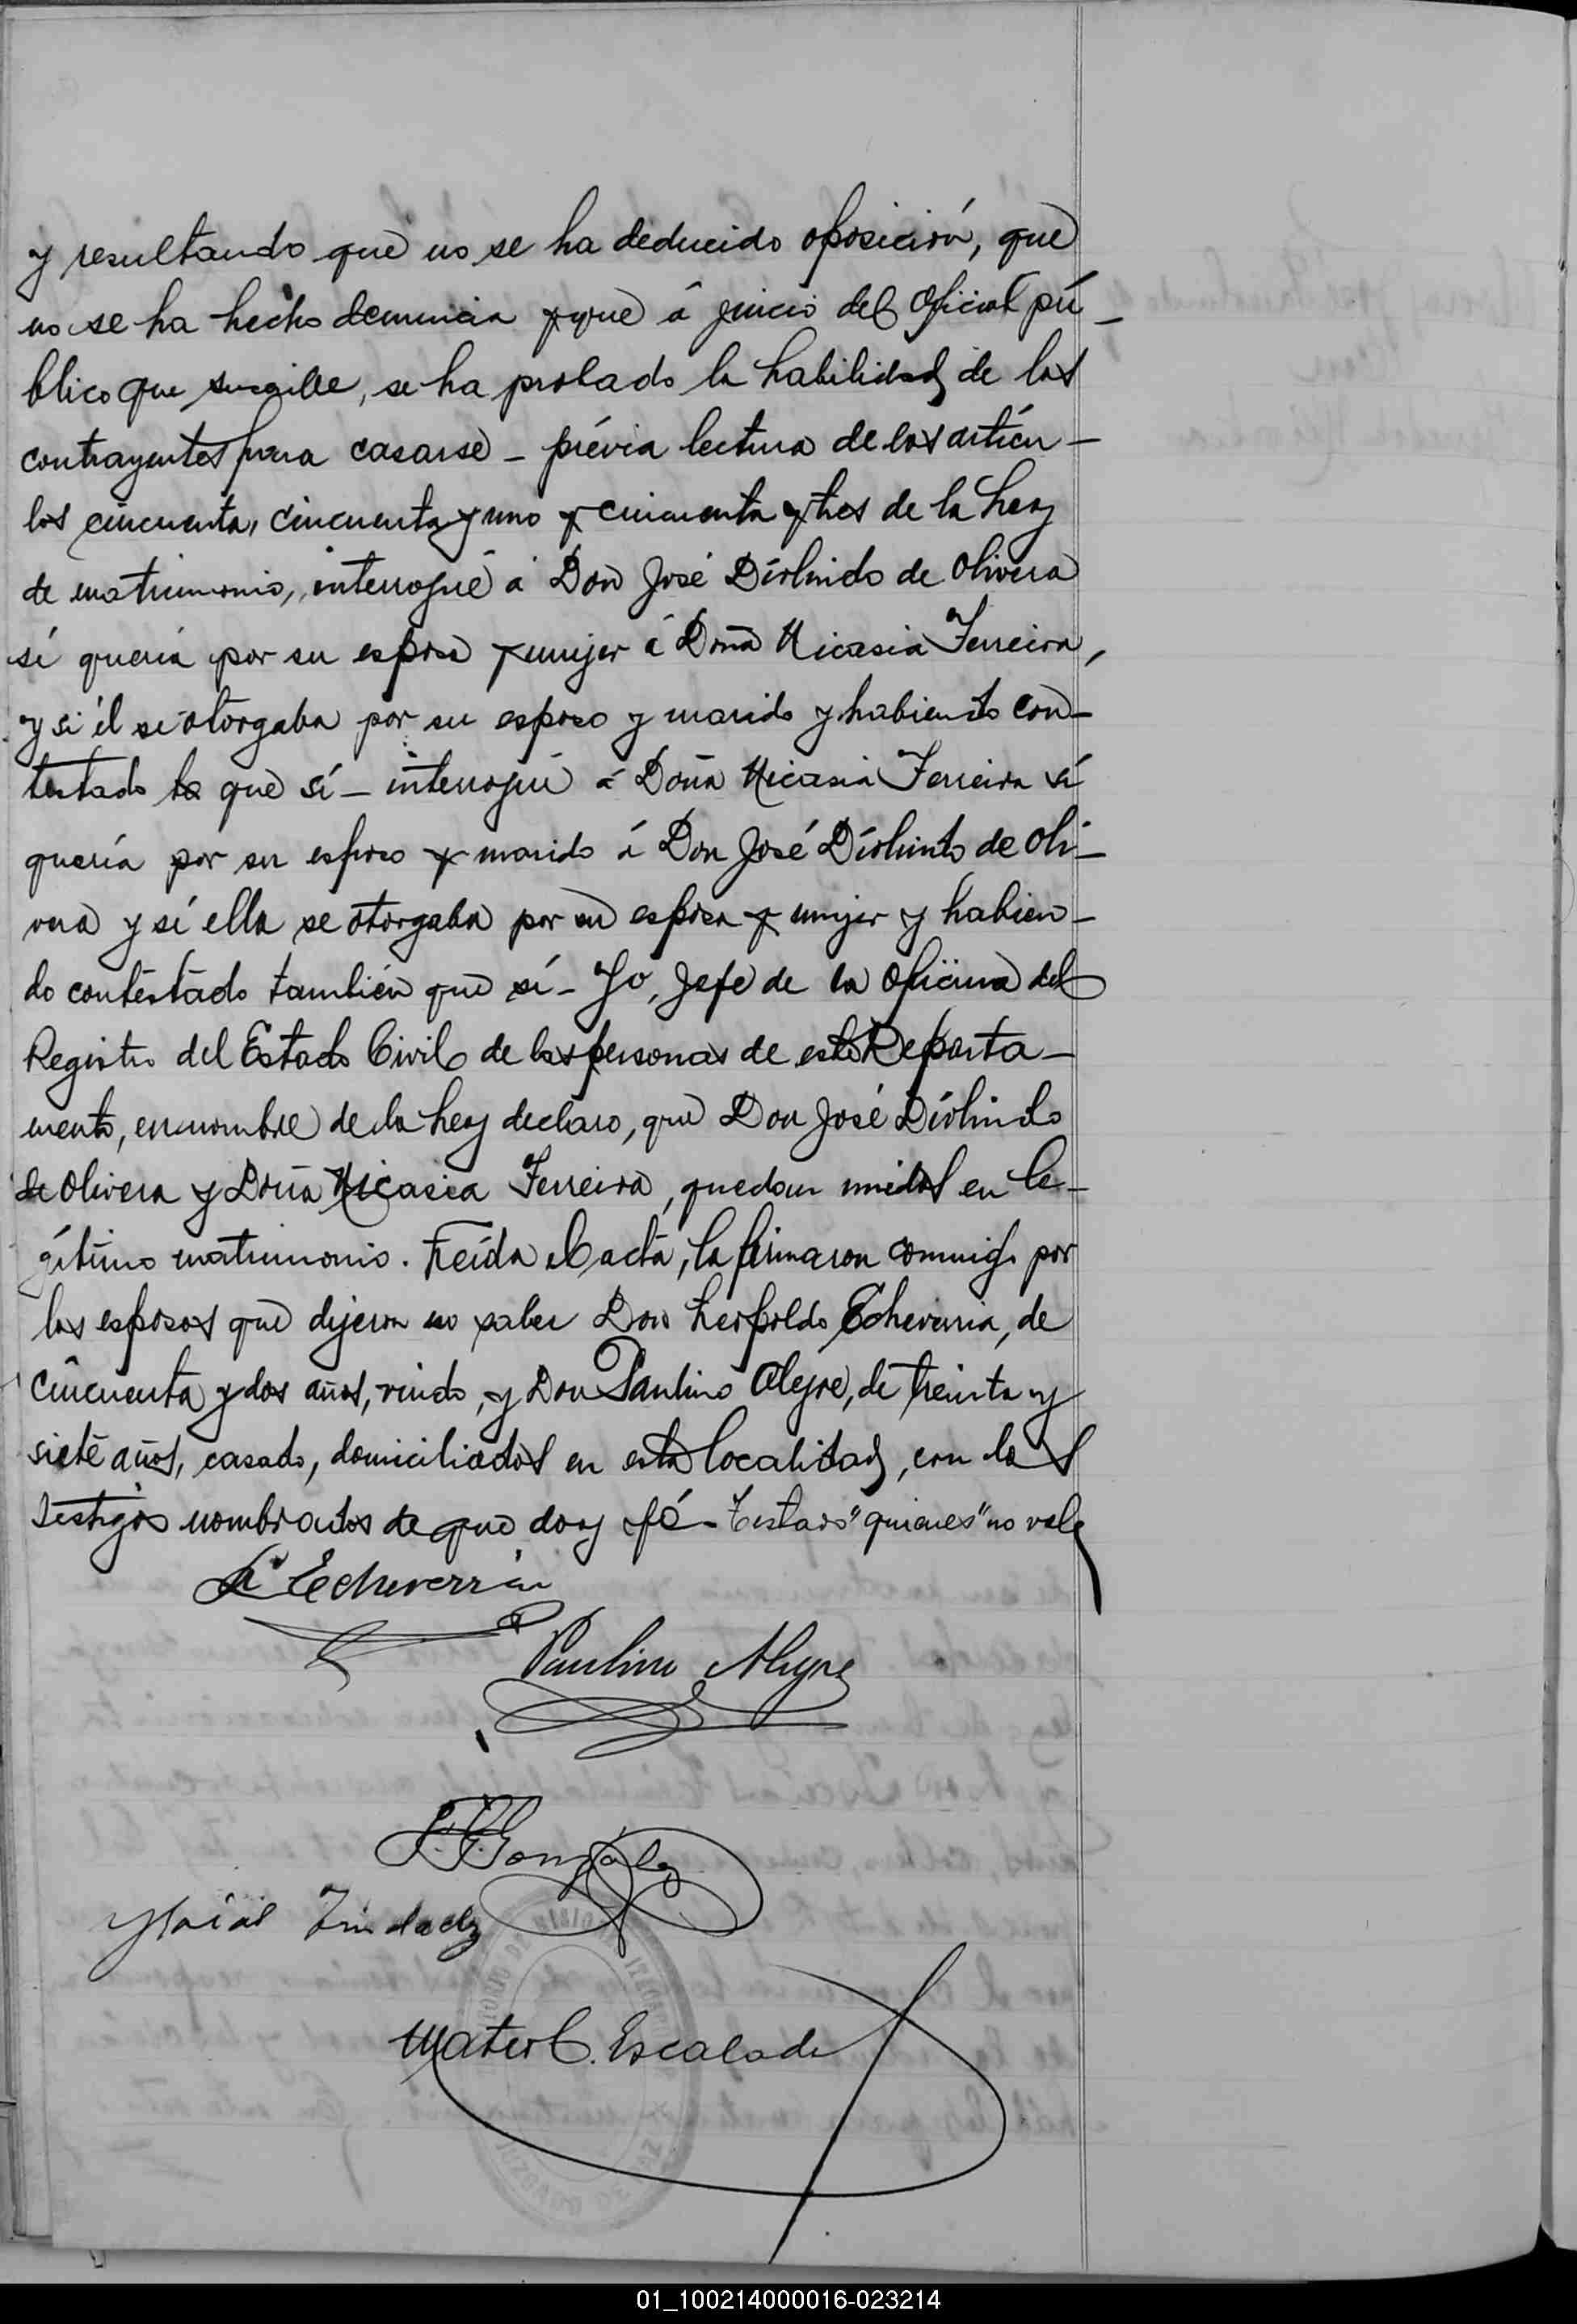 y resultando que no se ha deducido oposición, que
no se ha hecho denuncia y que á juicio del Oficial pú-
blico que suscribe, se ha probado la habilidad de los
contrayentes para casarse - prévia lectura de los artícu-
los cincuenta, cincuenta y uno y cincuenta y tres de la Ley
de matrimonio, interrogué á Don José Diolindo de Olivera
sí quería por su esposa y mujer á Doña Nicasia Ferreira,
y si él se otorgaba por su esposo y marido y habiendo con-
testado que sí - interrogué á Doña Nicasia Ferreira sí
quería por su esposo y marido á Don José Diolindo de Oli-
vera y sí ella se otorgaba por su esposa y mujer y habien-
do contestado también que sí - Yo, Jefe de la Oficina del
Registro del Estado Civil de las personas de este Departa-
mento, en nombre de la Ley declaro, que Don José Diolindo
de Olivera y Doña Nicasia Ferreira, quedan unidos en le-
gítimo matrimonio. Leída el acta, la firmaron conmigo por
los esposos que dijeron no saber Don Leopoldo Echeverria, de
cincuenta y dos años, viudo, y Don Paulino Alegre, de treinta y
siete años, casado, domiciliados en esta localidad, con los
testigos nombrados de que doy fé - Testado "quienes" no vale
L Echeverria
Paulino Alegre
González
Trindade
Mateo C. Escalada
JUZGADO DE PAZ
01_100214000016-023214